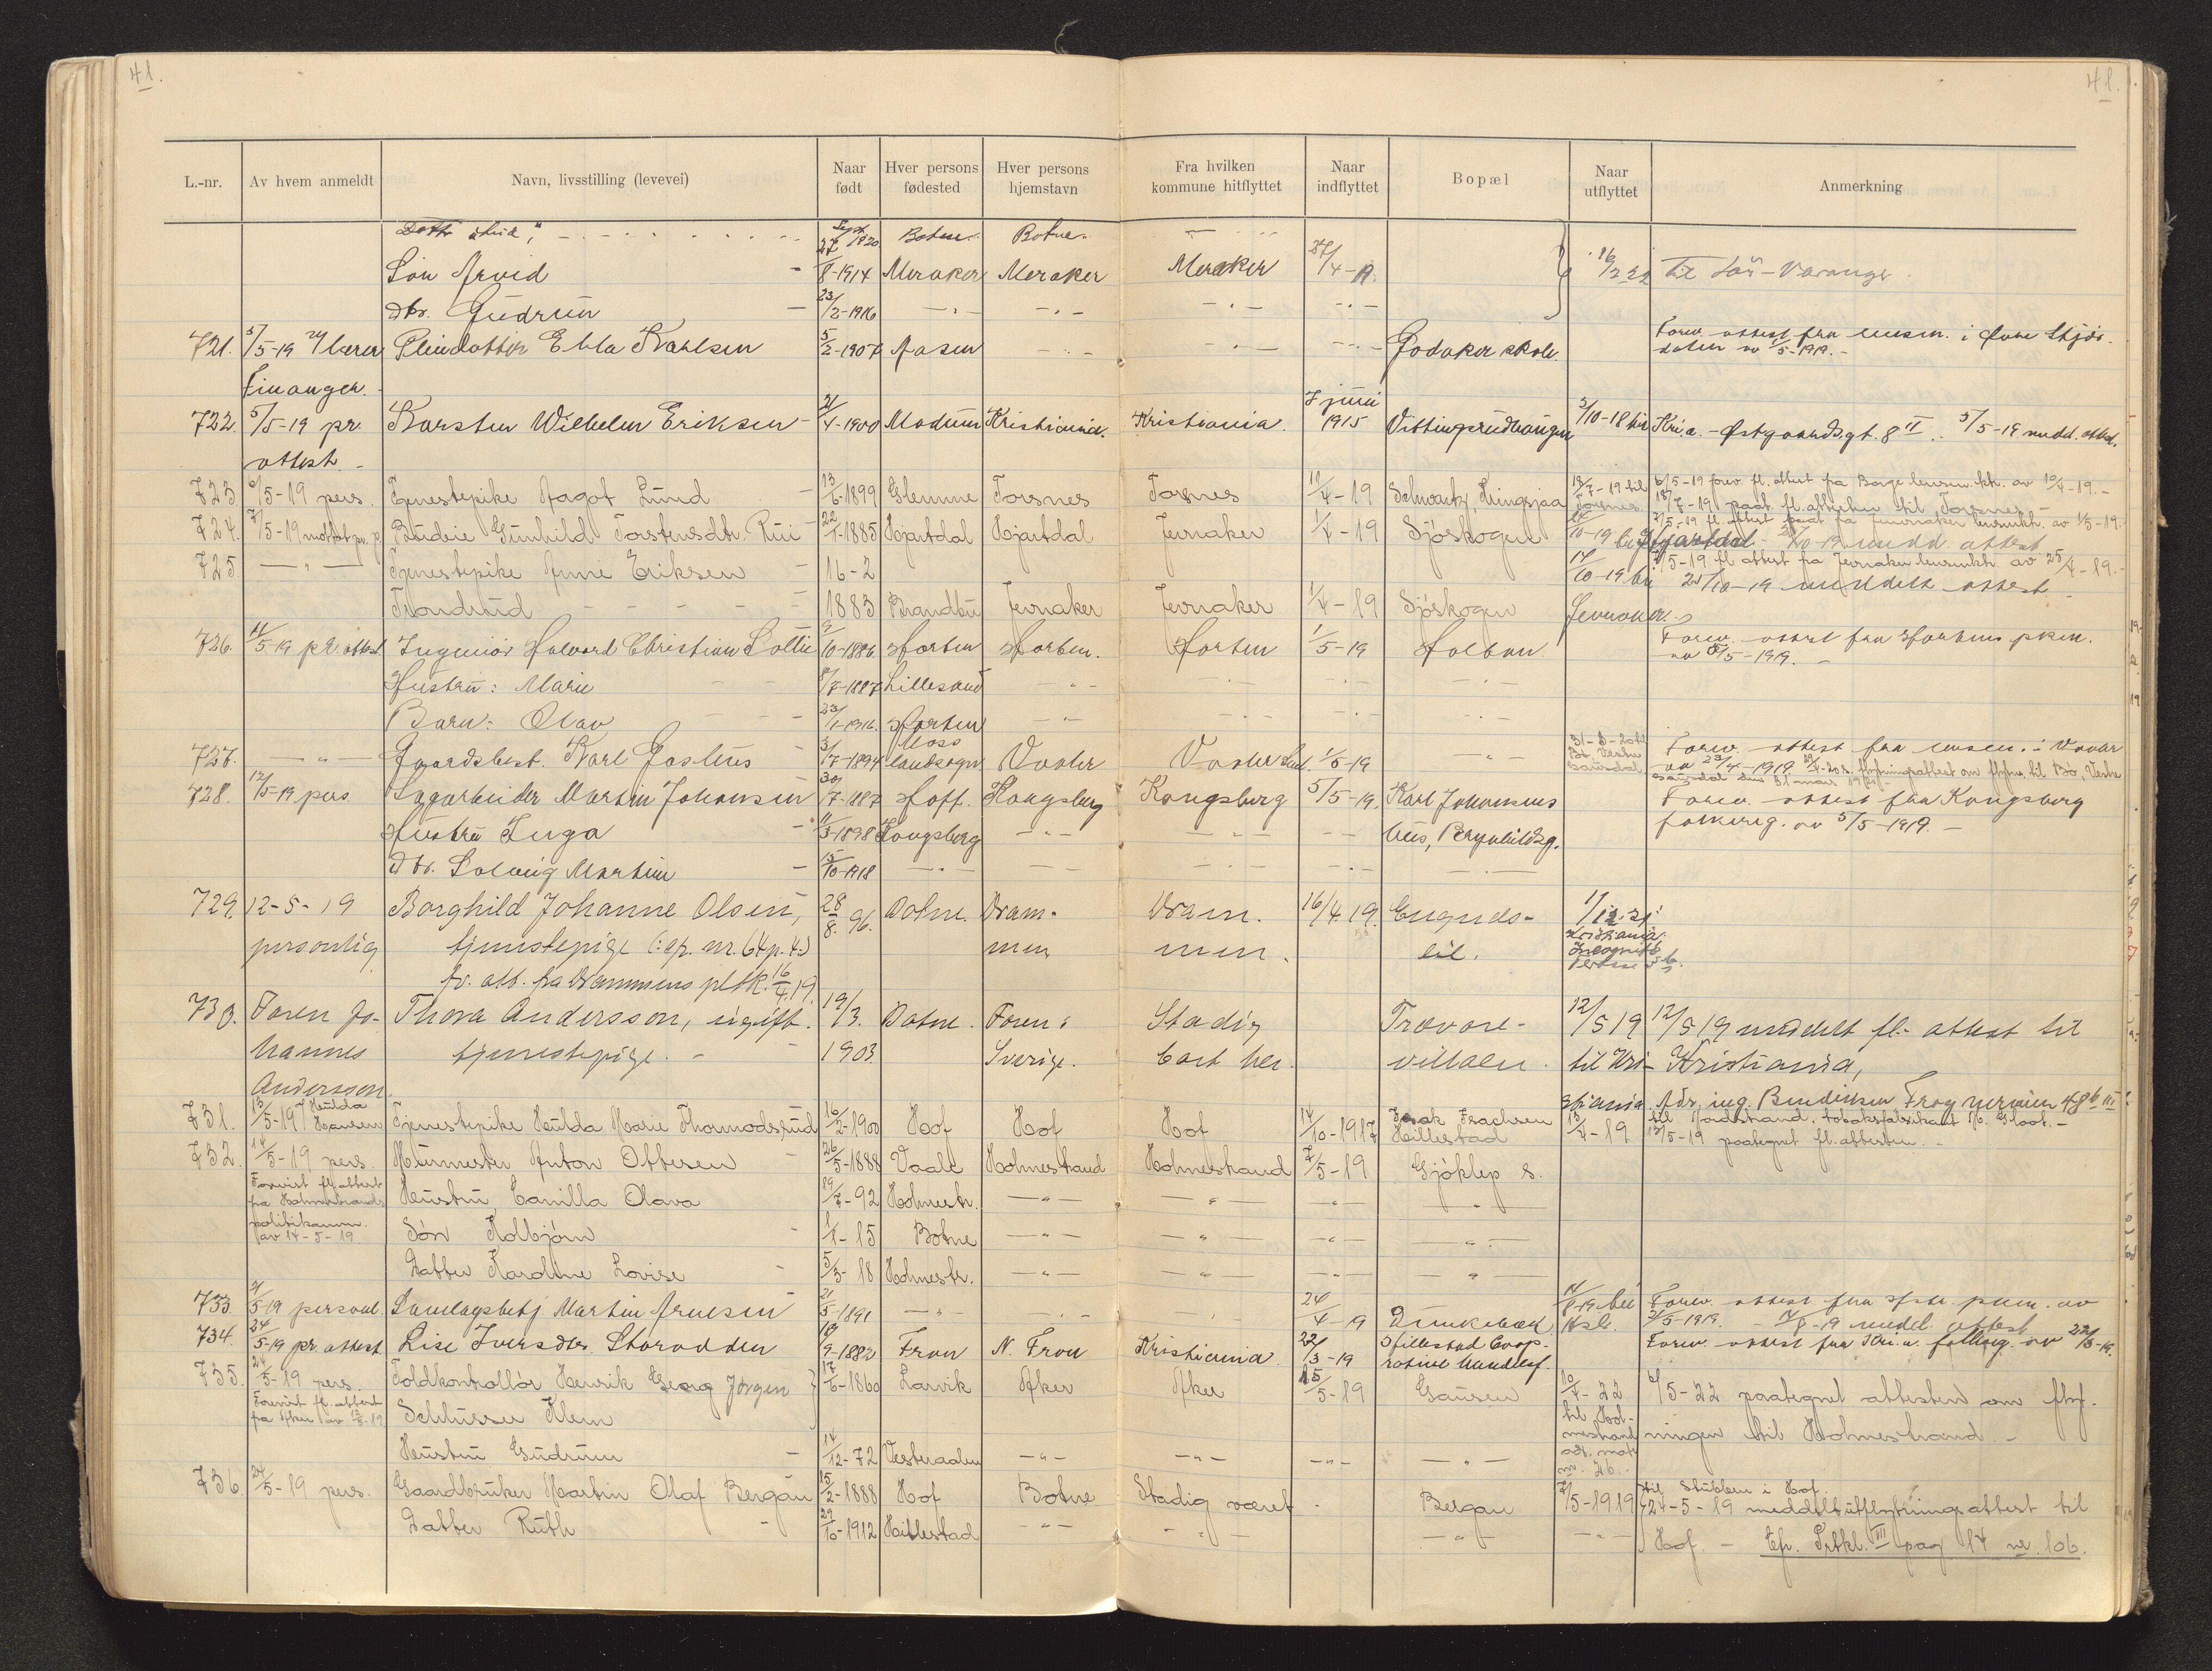 41.
41.
L.-nr. Av hvem anmeldt Navn, livsstilling (levevei) Naar født Hver persons fødested Hver persons hjemstavn Fra hvilken kommune hitflyttet Naar indflyttet Bopæl Naar utflyttet Anmerkning
Sept. 1920 Botne. Botne.
Søn Arvid 8-1914 Meraker Meraker Meraker 27/4-19. til Sør-Varanger.
Dtr. Gudrun 23/2-1916 -"- -"- -"- -"-
721. 5/5-19 Pleiedatter Ebba Karlsen 5/2-1907 Aasen -"- -"- -"- Godaker skole. Forev. attest fra lensm. i Øvre Stjør-
dalen av 1/5-1919.-
722. 5/5-19 pr. Karsten Wilhelm Eriksen 21/4-1900 Modum Kristiania. Kristiania 7 juni 1915 Vittingsrudhaugen 3/10-18 til Kri.a.-Østgaardsgt. 8 II. 5/5-19 medd. attest.
attest.-
723. 6/5-19 pers. Tjenestepike Aagot Lund 13/6-1899 Glemme Torsnes Torsnes 11/4-19 18/7-19 til Torsnes 6/5-19 forev. fl. attest fra Borge lensm.kt. av 10/4-19.-
18/7-19 paat. fl. attesten til Torsnes-
724. 7/5-19 Budeie Gunhild Torstensdtr. Rui 22/1-1885 Hjartdal Hjartdal Jevnaker 1/4-19 Sjøskogen 10-19 til Hjartdal 7/5-19 fl. attest fra Jevnaker lensmkt. av 1/5-19.
10-19 medd. attest
725. -"- Tjenestepike Anne Eriksen 16-2 14/10-19 til 7/5-19 fl. attest fra Jevnaker lensmkt. av 25/4-19.-
Trondrud 1883 Brandbu Jevnaker Jevnaker 1/4-19 Sjøskogen Jevnaker. 10-19 meddelt attest.
726. 5-19 pr. attest Ingeniør Halvard Christian 9/10-1886. Horten Horten. Horten 1/5-19 Holtan Forev. attest fra Hortens pkm.
av 5-1919.-
Hustru: Marie 7-1887 Lillesand -"- -"- -"- -"-
Barn: Olav 23/1-1916. Horten -"- -"- -"- -"-
727. -"- Gaardsbest. Karl Gaslus 3/7-1894 Moss landsogn Vaaler Vaaler 1/5-19 -"- 31-3-20 til Bø Vestre Forev. attest fra lensm. i Vaaler
av 23/4-1919 flytningsattest om flytn. til Bø, Vestre
den 31 mars
728. 12/5-19 pers. Sagarbeider Martin Johansen 30/7-1887 Hoff. Kongsberg Kongsberg 5/5-19. Karl Johansens Forev. attest fra Kongsberg
Hustru Inga 11/3-1898 Kongsberg -"- -"- -"- hus, folkereg. av 5/5-1919.-
Dtr. Solveig Martine 15/10-1918 -"- -"- -"- -"-
729. 12-5-19 Borghild Johanne Olsen, 28/8. 96. Botne. Dram- Dram- 16/4 19. Engnds-
personlig tjenestepige (:op. nr. 64 p. 4:) men men. lil. Kristiania
fr. att. fra Drammens pltk. 16/4 19.
730. Faren Jo- Thora Andersson, ugift. 19/3. Botne. Faren: Stadig Trævare- 12/5 19 12/5 19 meddelt fl. attest til
hannes tjenestepige. 1903. Sverige. boet her. villaen. til Kri- Kristiania,
Andersson stiania. Adr. ing. Bendixsen Frognerveien 48 b III
731. 13/5-19 Hulda Hansen Tjenestepike Hulda Marie Thormodsrud 16/2-1900 Hof Hof Hof 14/10-1917 Isak Isachsen Hillestad 4-19 til Nordstrand, tobaksfabrikant
13/5-19 paategnet fl. attesten.-
732. 14/5-19 pers. Murmester Anton Ottersen 26/5-1888 Vaale Holmestrand Holmestrand 7/5-19 Gjøklep s.
Forevist fl. attest
fra Holmestrands Hustru Camilla Olava 19/7-92 Holmestr. -"- -"- -"- -"-
politikamm.
av 14-5-19 Søn Kolbjørn 1/1-15 Botne -"- -"- -"- -"-
Datter Karoline Lovise 5/3-18 Holmestr. -"- -"- -"- -"-
733. 21/5-19 personl. Samlagsbetj Martin Arnesen 21/5-1891 -"- -"- 24/4-19 8-19 til Forev. attest fra pkm. av
21/5-1919. 8-19 medd. attest
734. 24/5-19 pr. attest Lise Iversdtr. Storodden 18/9-1882 Fron N. Fron Kristiania 22/3-19 Hillestad Coop- Forev. attest fra Kri.a. folkreg. av 22/5-19.
rative handelsf.
735. 24/5-19 pers. Toldkontrollør Henrik Georg Jørgen 17/6-1860 Larvik Aker Aker 15/5-19 Gausen 10/4-22 5-22 paategnet attesten om flyt-
Forevist fl. attest
fra Aker av 13/5-19 Schlüsser Klem til Hol- ningen til Holmestrand-
mestrand
Hustru Gudrun 14/12-72 Vesteraalen -"- -"- -"- -"- nr. 26.-
736. 24/5-19 pers. Gaardbruker Martin Olaf Bergan 15/2-1888 Hof Botne Stadig været. Bergan 5-1919 til Stubben i Hof
24-5-19 meddelt utflytningsattest til
Datter Ruth 29/10-1912 Hillestad -"- -"- -"- -"- Hof.- Cfr. Prtkl. III pag 14 nr. 106.